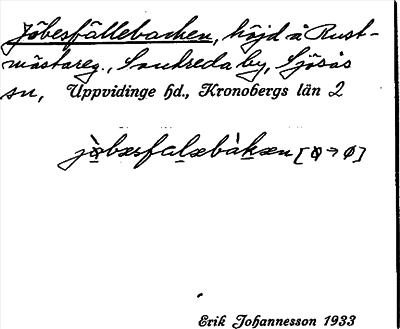 Jöbesfällebacken, höjd å Rust-
mästareg., Sandreda by, Sjösås
sn, Uppvidinge hd., Kronobergs län 2
Erik Johannesson 1933